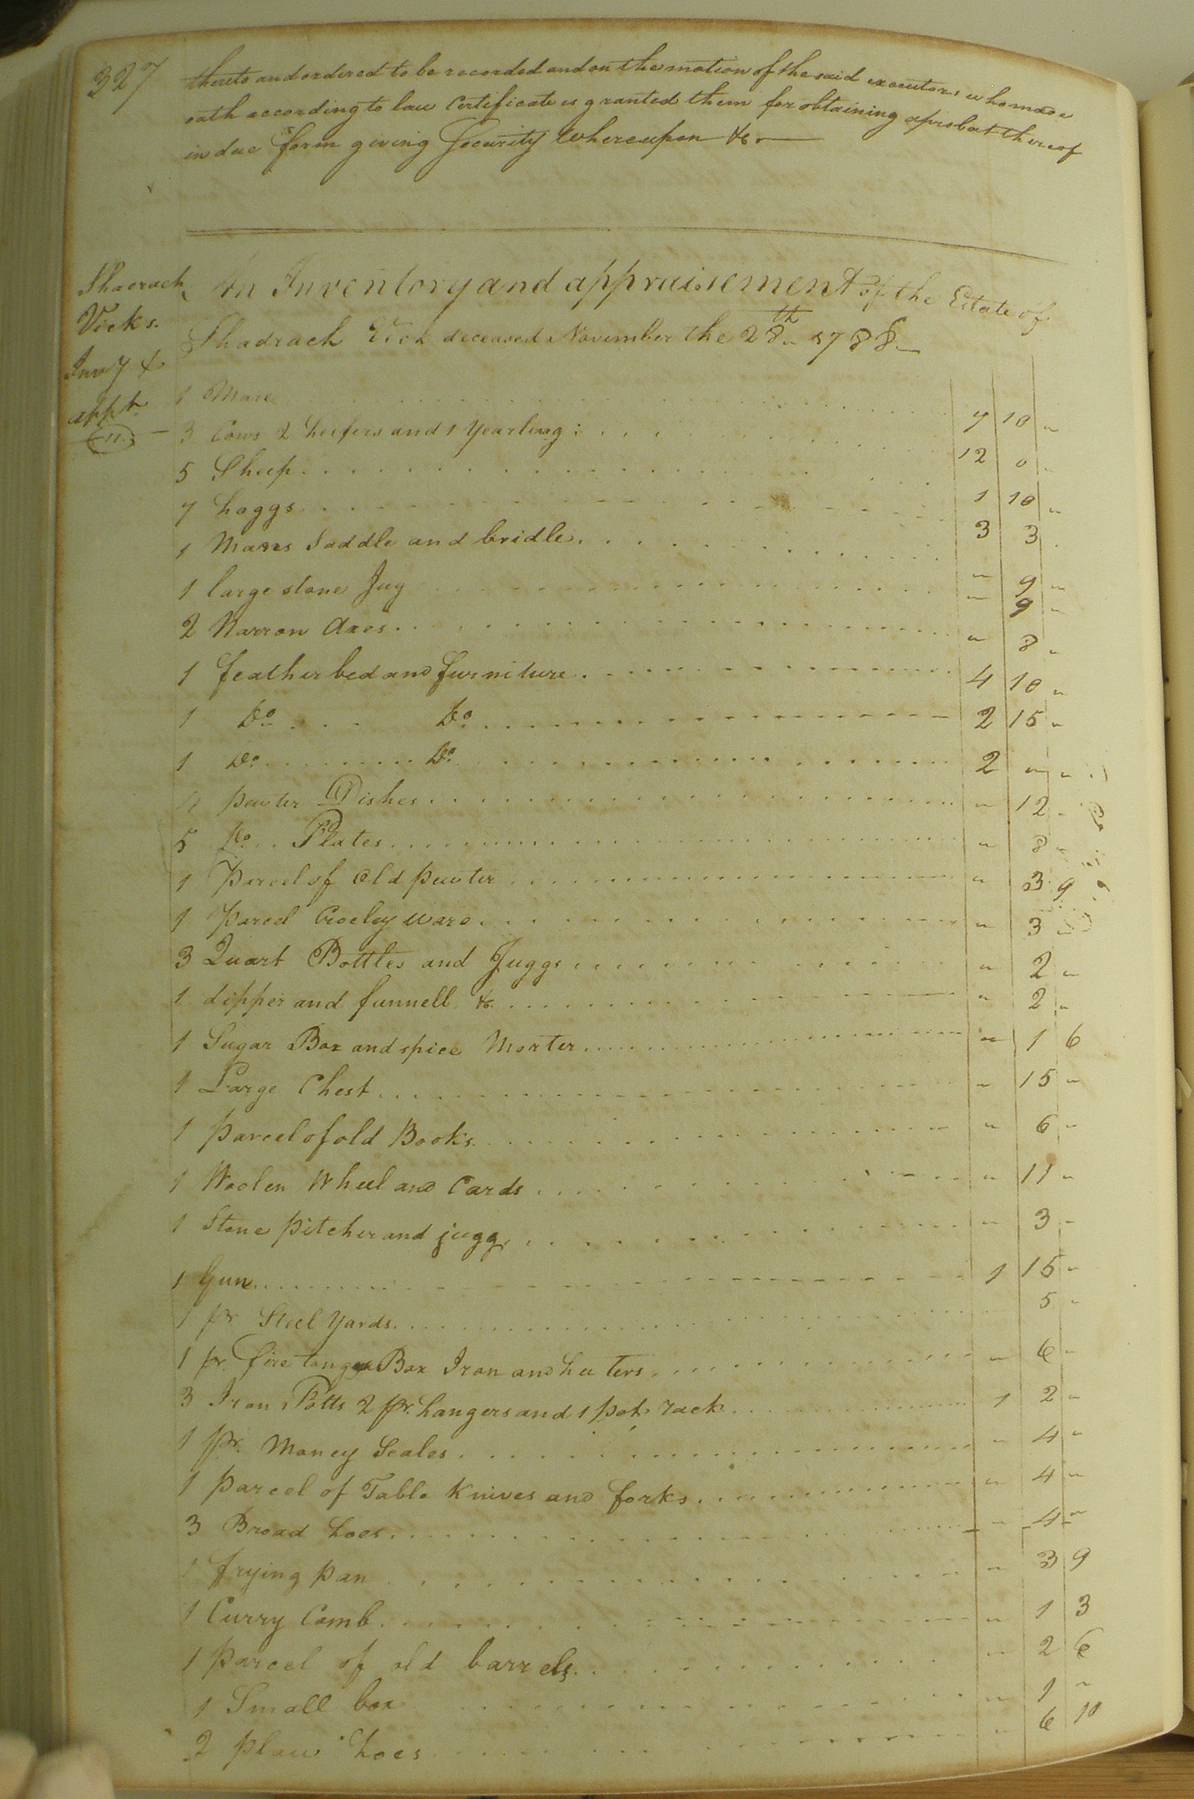 327
thereto and ordered to be recorded and on the motion of the said executors who made
oath according to law Certificate is granted them for obtaining a probat thereof
in due form giving Security Whereupon &c
Shacrach
Vicks
Invy &
appt
An Inventory and appraisement of the Estate of
Shadrach Vick deceased November the 28th 1788
1 Mare 7 10 "
3 Cows 2 heifers and 1 Yearling 12 0 "
5 Sheep 1 10 "
7 hoggs 3 3
1 Mans Saddle and bridle " 9 "
1 large stone Jug " 9 "
2 Narron Axes " 8 "
1 feather bed and furniture 4 10 "
1 Do Do 2 15 "
1 Do Do 2 " "
4 pewter Dishes " 12
5 Do Plates " 8
1 Parcel of old pewter " 3 9
1 Parcel Crocley ware " 3 "
3 Quart Bottles and Juggs " 2 "
1 dipper and funnell &c " 2 "
1 Sugar Box and spice Morter " 1 6
1 Large Chest " 15 "
1 parcel of old Books " 6 "
1 Woolen Wheel and Cards " 11 "
1 Stone pitcher and jugg " 3 "
1 Gun 1 15 "
1 pr Steel Yards 5 "
1 pr fire tongs Box Iron and heeters " 6 "
3 Iron Potts 2 pr hangers and 1 pot rack 1 2 "
1 pr Money Scales " 4 "
1 parcel of Table Knives and forks " 4 "
3 Broad hoes " 4 "
1 frying pan " 3 9
1 Curry Comb " 1 3
1 parcel of old barrels " 2 6
1 Small box " 1 "
2 plow hoes " 6 10